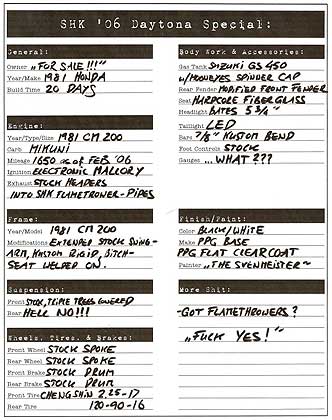 SHK '06 Daytona Special:
General:
Owner "FOR SALE!!!"
Year/Make 1981 HONDA
Build Time 20 DAYS
Engine:
Year/Type/Size 1981 CM 200
Carb MIKUNI
Mileage 1650 as of FEB '06
Ignition ELECTRONIC MALLORY
Exhaust STOCK HEADERS
INTO SHK FLAMETROWER-PIPES
Frame:
Year/Model 1981 CM 200
Modifications EXTENDED STOCK SWING-
ARM, KUSTOM RIGID, BITCH-
SEAT WELDED ON.
Suspension:
Front STOCK, TRIPLE TREES LOWERED
Rear HELL NO!!!
Wheels, Tires, & Brakes:
Front Wheel STOCK SPOKE
Rear Wheel STOCK SPOKE
Front Brake STOCK DRUM
Rear Brake STOCK DRUM
Front Tire CHENGSHIN 2.25-17
Rear Tire 120-90-16
Body Work & Accessories:
Gas Tank SUZUKI GS 450
W/MOONEYES SPINNER CAP
Rear Fender MODIFIED FRONT FENDER
Seat HARDCORE FIBERGLASS
Headlight BATES 5 3/4"
Taillight LED
Bars 7/8" KUSTOM BEND
Foot Controls STOCK
Gauges ...WHAT???
Finish/Paint:
Color BLACK/WHITE
Make PPG BASE
PPG FLAT CLEARCOAT
Painter "THE SVENMEISTER"
More Shit:
-GOT FLAMETHROWERS?
"FUCK YES!"